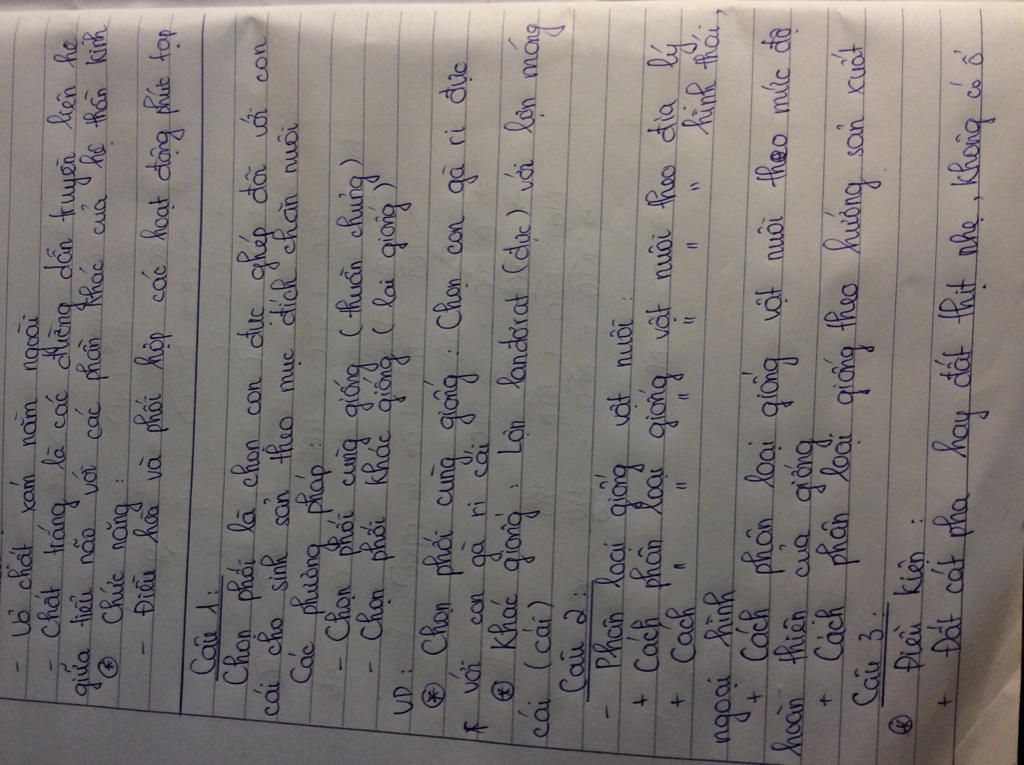 - Vỏ chất xám nằm ngoài
- Chất trắng là các đường dẫn truyền liên hệ
giữa tiểu não với các phần khác của hệ thần kinh
* Chức năng:
- Điều hòa và phối hợp các hoạt động phức tạp
Câu 1:
Chọn phối là chọn con đực ghép đôi với con
cái cho sinh sản theo mục đích chăn nuôi
Các phương pháp:
- Chọn phối cùng giống (thuần chủng)
- Chọn phối khác giống (lai giống)
VD:
* Chọn phối cùng giống: Chọn con gà ri đực
với con gà ri cái
* Khác giống: Lợn landơrat (đực) với lợn móng
cái (cái)
Câu 2:
- Phân loại giống vật nuôi:
+ Cách phân loại giống vật nuôi theo địa lý
+ Cách " " " " " " hình thái,
ngoại hình
+ Cách phân loại giống vật nuôi theo mức độ
hoàn thiện của giống
+ Cách phân loại giống theo hướng sản xuất
Câu 3:
* Điều kiện:
+ Đất cát pha hay đất thịt nhẹ, không có ổ